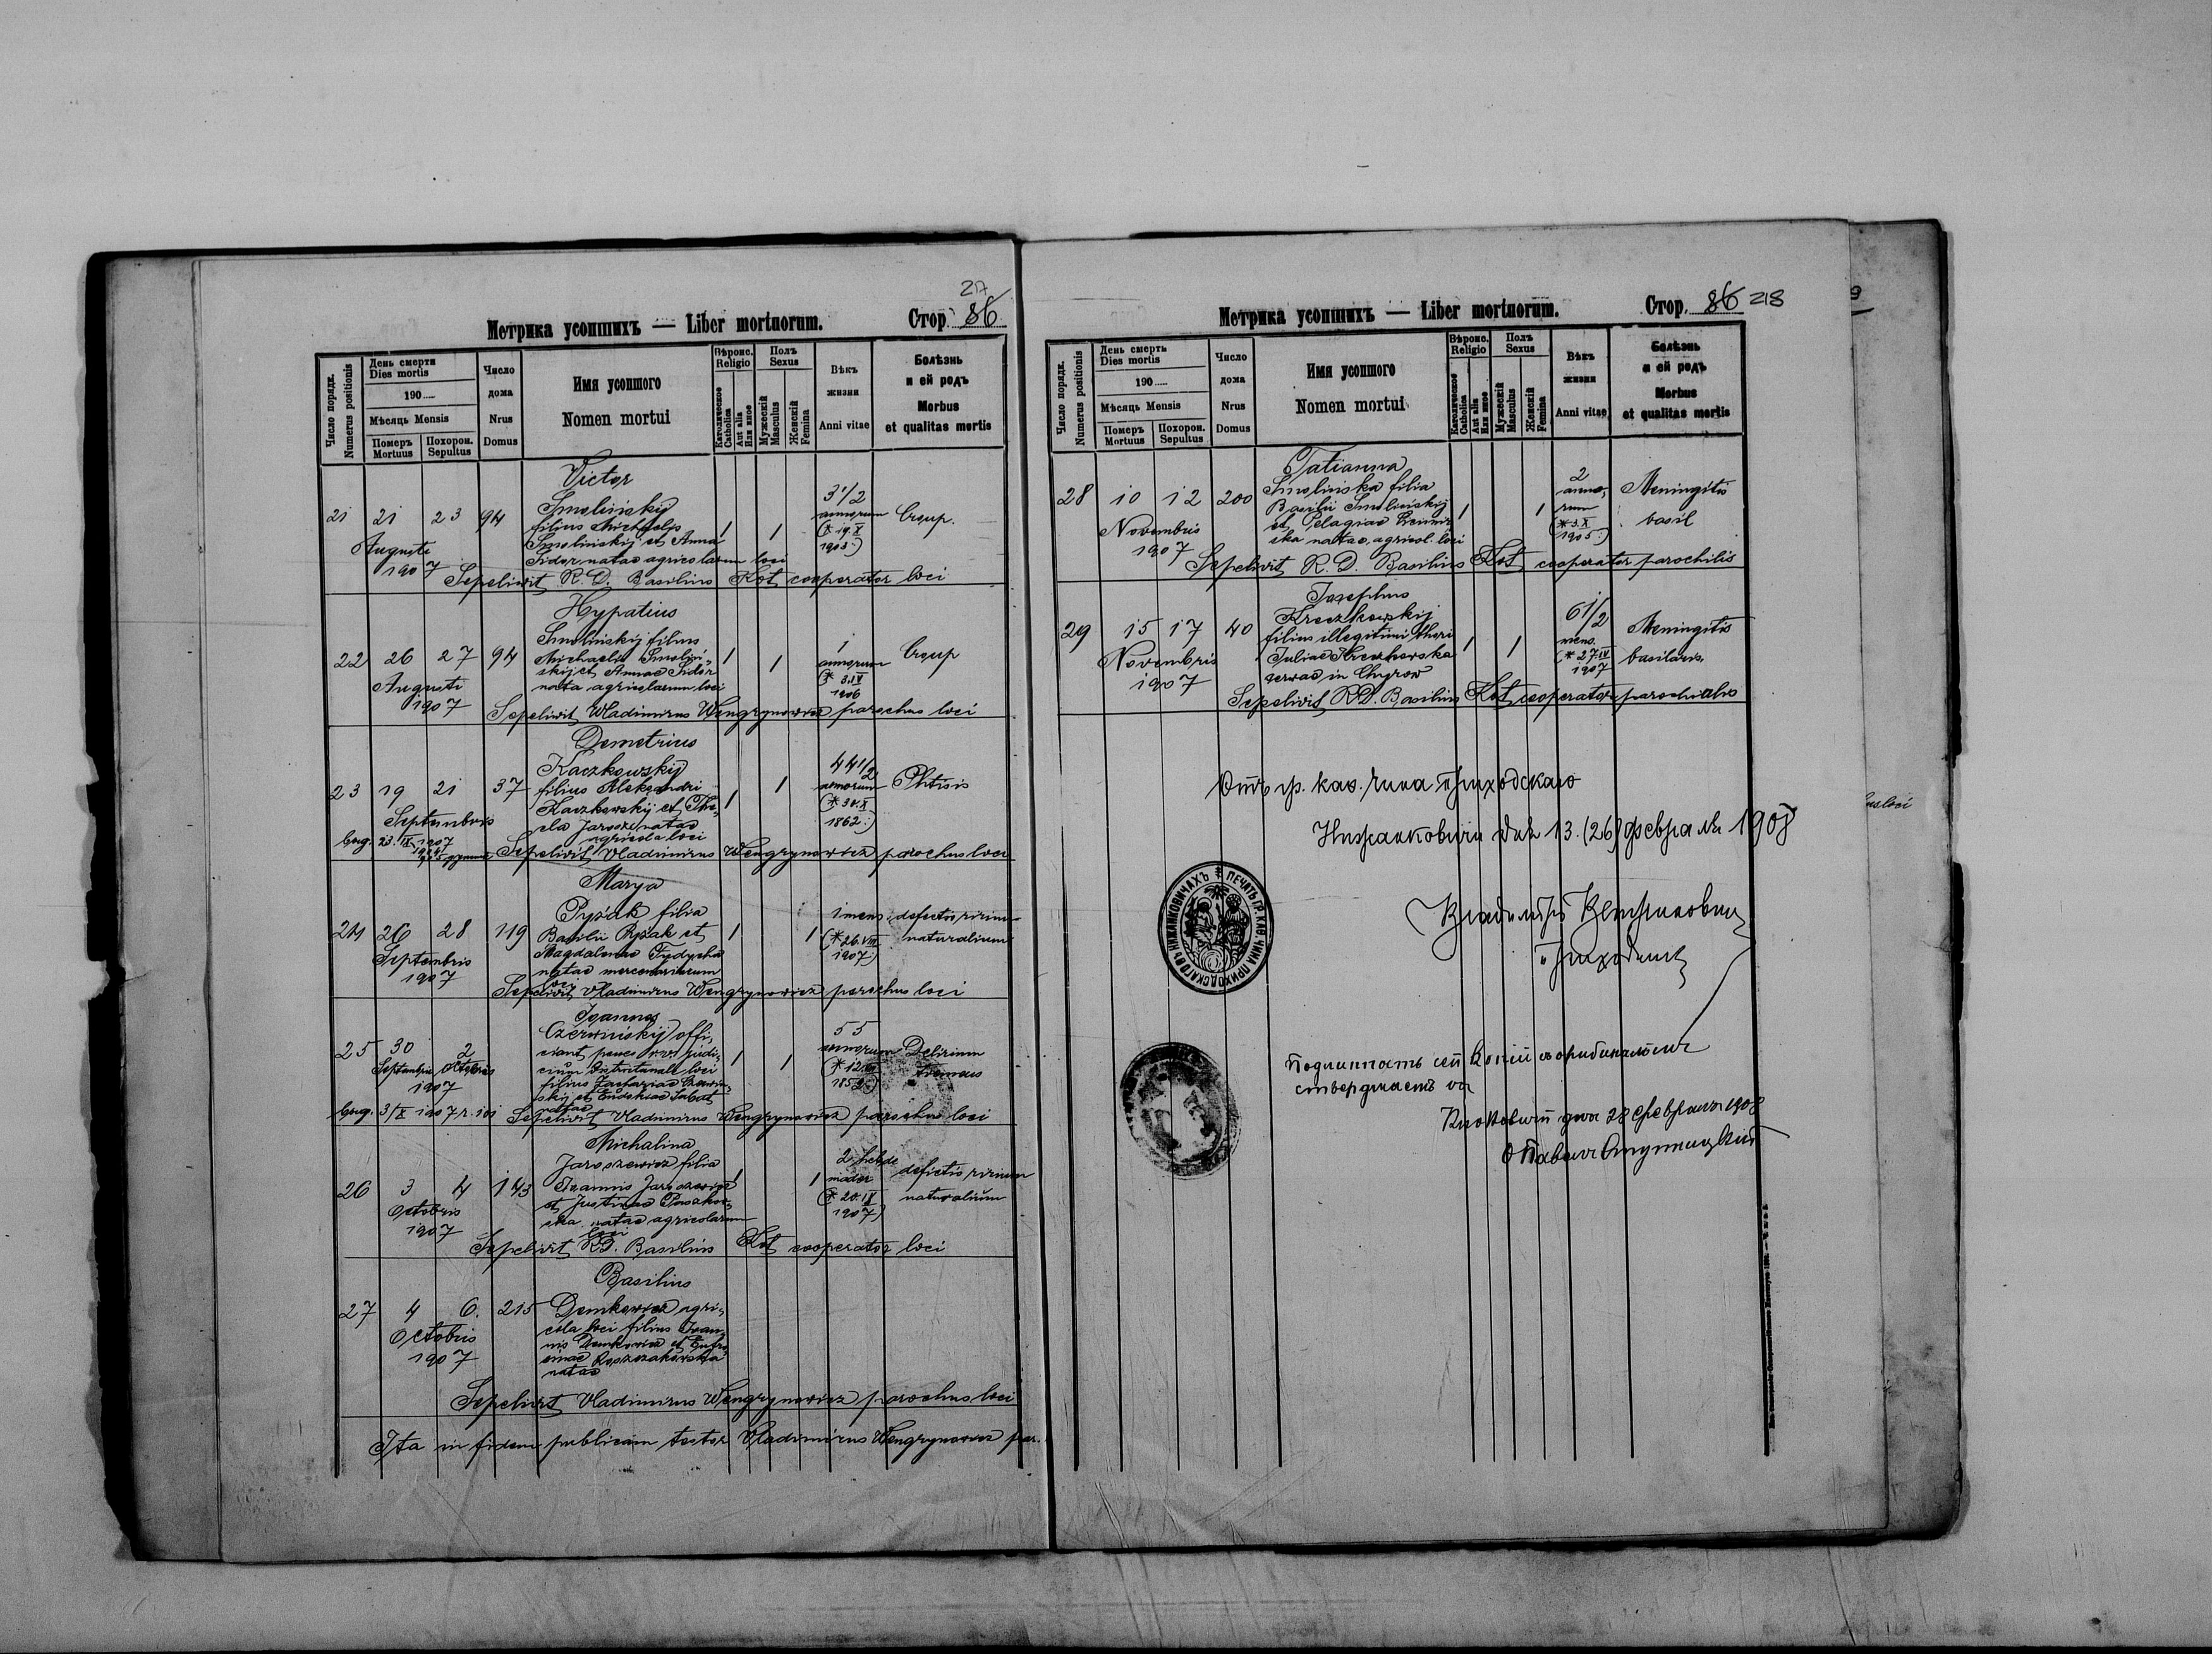 217
Метрика усопшихъ — Liber mortuorum. Стор. 86
Число порядк.
Numerus positionis
День смерти
Dies mortis
190
Мѣсяць Mensis
Померъ
Mortuus
Похорон.
Sepultus
Число
дома
Nrus
Domus
Имя усопшого
Nomen mortui
Вѣроис.
Religio
Католическое
Catholica
Aut alia
Или иное
Полъ
Sexus
Мужескій
Masculus
Женскій
Femina
Вѣкъ
жизни
Anni vitae
Болѣзнь
и ей родъ
Morbus
et qualitas mortis
Victor
21 21 23 94 Smolinskij 3 1/2 annorum Croup.
filius Michaelis 1 1 (* 19.X
Smolinskij et Anna 1903.)
Augusti Sidor natae agricolarum loci
1907 Sepelivit R. D. Basilius Kot cooperator loci
Hypatius
Smolinskij filius
22 26 27 94 Michaelis Smolin- 1 1 1 annorum Croup
skij et Annae Sidor (* 3.IV
Augusti nata agricolarum loci 1906
1907 Sepelivit Wladimirus Wengrynowicz parochus loci
Demetrius
Kaczkowskij 44 1/2
23 19 21 37 filius Aleksandri 1 1 annorum Phtisis
Kaczkowskij et The- (* 30.X
Septembris cla Jarosz natae 1862.)
agricola loci
1907 Sepelivit Vladimirus Wengrynowicz parochus loci
Marya
Pyzak filia 1 mens. defectus virium
24 26 28 119 Basilii Pyzak et 1 1 (* 26.VIII naturalium
Septembris Magdalenae Fedycha 1907)
1907 natae mercenariorum
loci
Sepelivit Vladimirus Wengrynowicz parochus loci
Joannes
Czerwinskij offi- 55
25 30 2 ciant penes judi- 1 1 annorum Delirium
Septembris Octobris loci 1852) tremens
1907 filius Zachariae Czerwin-
skij et Eudokiae
natae
3/X 1907 Sepelivit Vladimirus Wengrynowicz parochus loci
Michalina
Jaroszewicz filia 2 hebdo
26 3 4 143 Joannis Jaroszewicz 1 1 mador defectus virium
Octobris et Justinae (* 20.IX naturalium
1907 natae agricolarum 1907)
loci
Sepelivit R.D. Basilius Kot cooperator loci
Basilius
27 4 6. 215 Demkowicz agri-
Octobris cola loci filius Joan-
1907 nis Demkowicz et
natae
Sepelivit Vladimirus Wengrynowicz parochus loci
Ita in fidem publicam testor Vladimirus Wengrynowicz par.
Метрика усопшихъ — Liber mortuorum. Стор. 86 218
Число порядк.
Numerus positionis
День смерть
Dies mortis
190
Мѣсяць Mensis
Померъ
Mortuus
Похорон.
Sepultus
Число
дома
Nrus
Domus
Имя усопшого
Nomen mortui
Вѣроис.
Religio
Католическое
Catholica
Aut alia
Или иное
Полъ
Sexus
Мужескій
Masculus
Женскій
Femina
Вѣкъ
жизни
Anni vitae
Болѣзнь
и ей родъ
Morbus
et qualitas mortis
Tatianna
28 10 12 200 Smolinska filia 2 anno- Meningitis
Basilii Smolinskij 1 1 rum basil
Novembris et Pelagiae (* 3.X
1907 natae agricol. loci 1905.)
Sepelivit R. D. Basilius Kot cooperator parochilis
Josephus
Kreczkowskij 6 1/2
29 15 17 40 filius illegitimi thori 1 1 mens. Meningitis
Novembris Juliae (* 27.IV basilaris.
1907 servae in Chyrow 1907
Sepelivit R.D. Basilius Kot cooperator parochialis
Отъ гр. каѳ. чина приходскаго
Нижанковичи дня 13. (26) февраля 1908
ПЕЧАТЬ ГР. КАѲ. ЧИНА ПРИХОДСКАГО ВЪ НИЖАНКОВИЧАХЪ
Приходникъ
Подлинность сей копіи съ оригиналомъ
стверджаетъ ся
дня 28 февраля 1908
О Павелъ